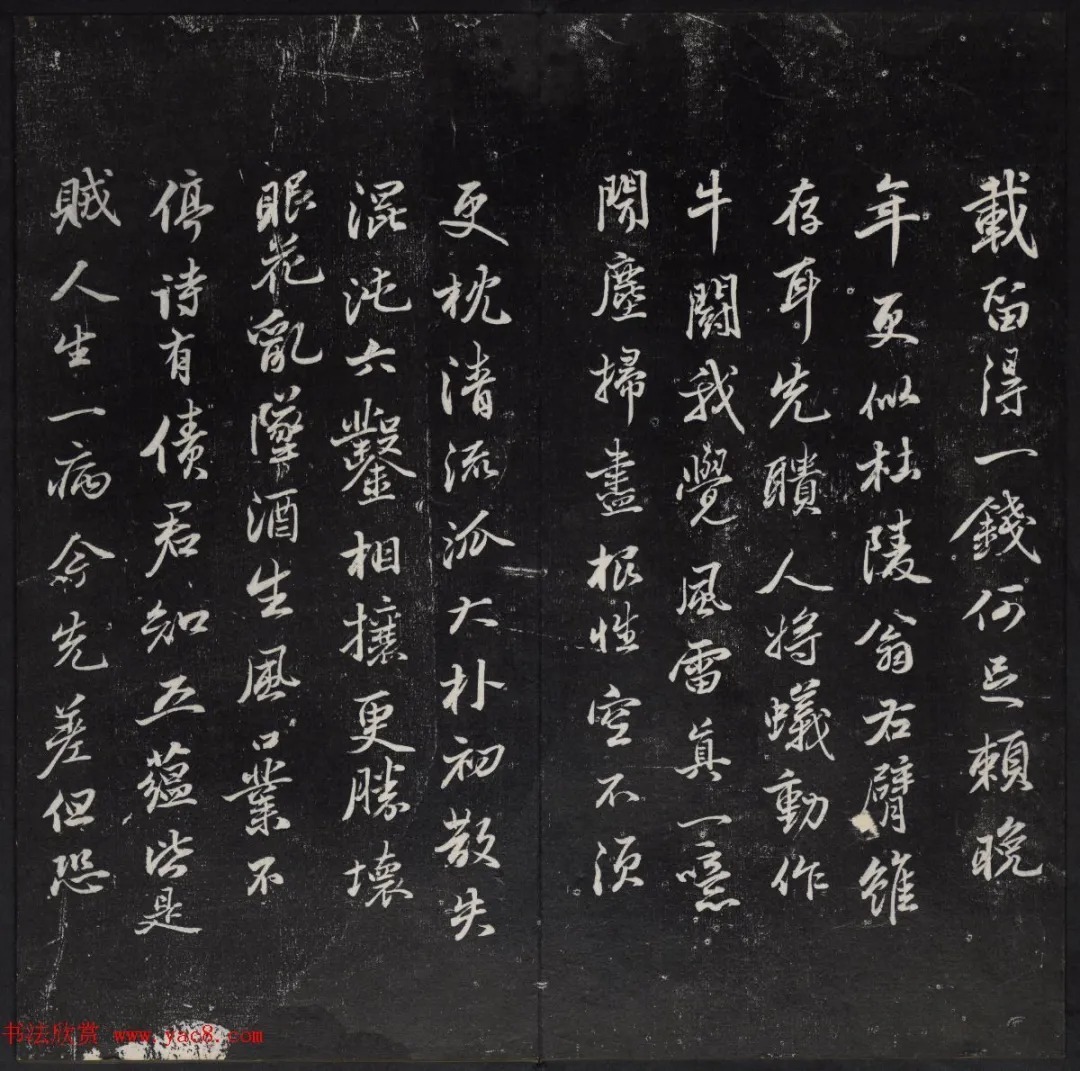 載留得一錢何足賴晚
年更似杜陵翁右臂雖
存耳先聵人將蟻動作
牛鬪我覺風雷真一噫
聞塵掃盡根性空不須
更枕清流派大朴初散失
混沌六鑿相攘更勝壞
眼花亂墜酒生風口業不
停詩有債君知五蘊皆是
賊人生一病今先差但恐
书法欣赏 www.yac8.com